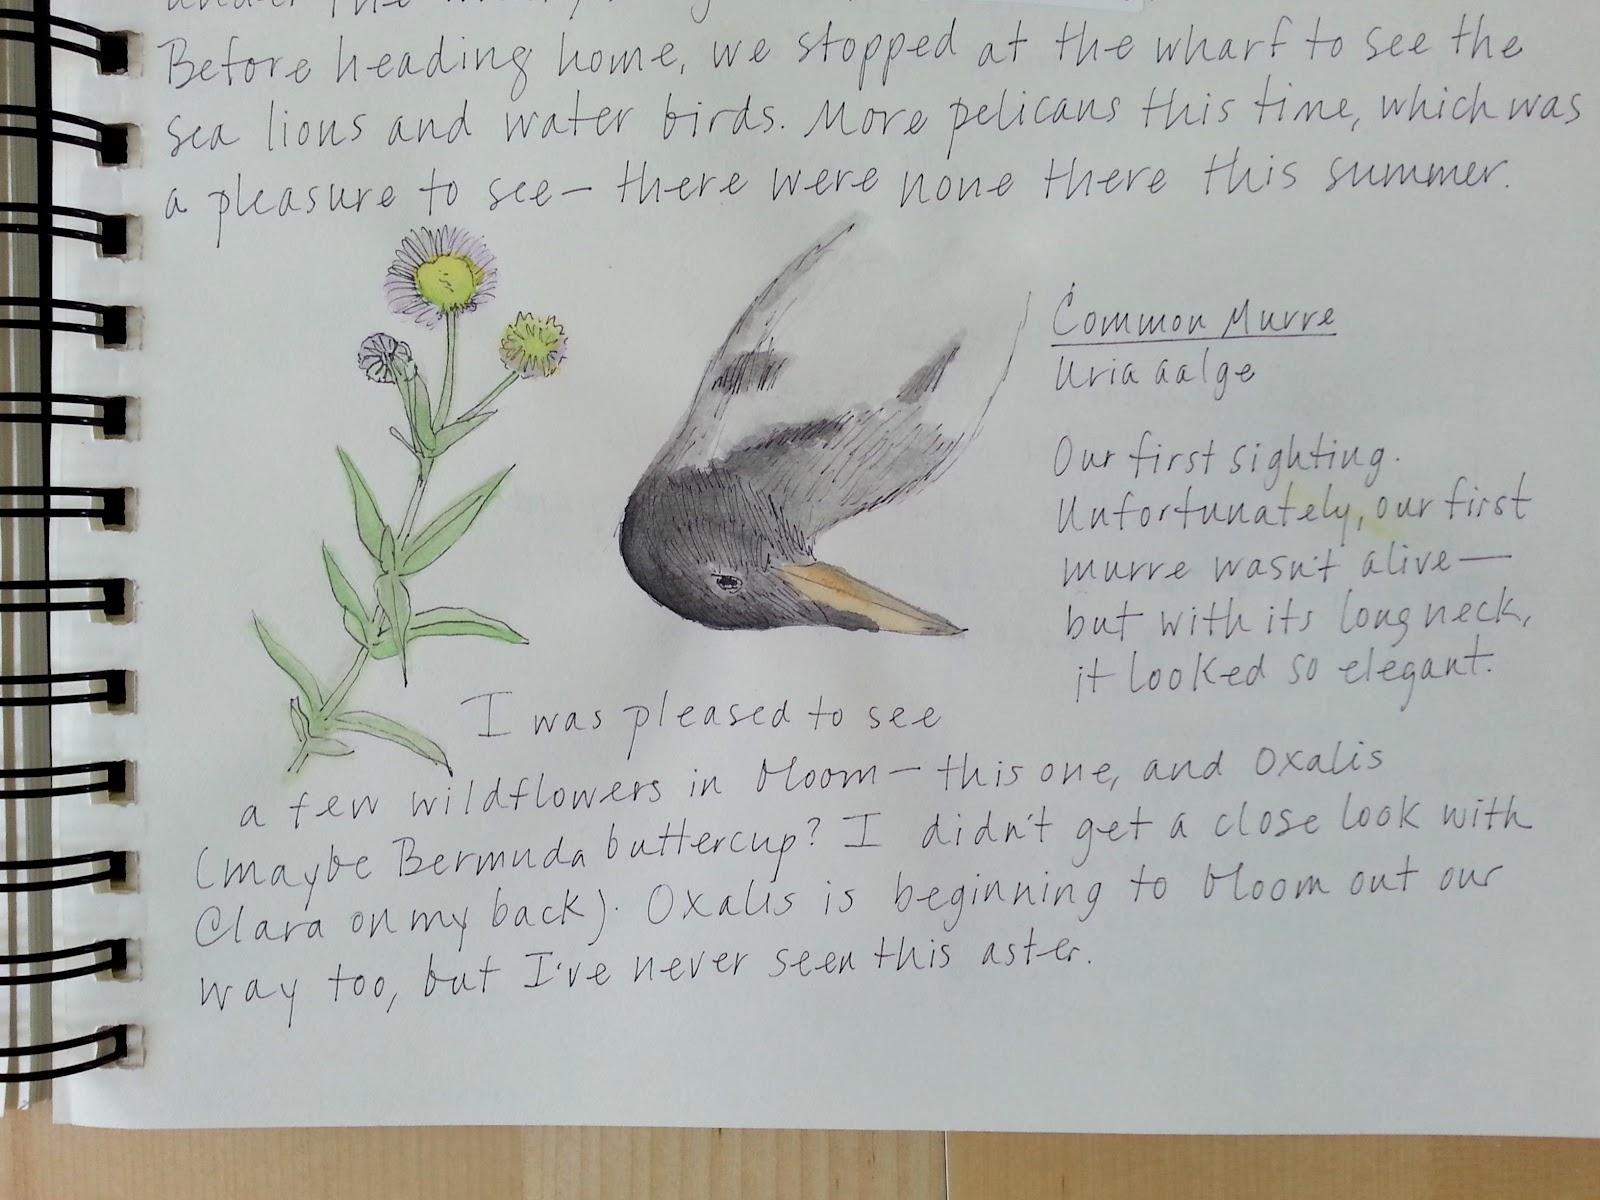 under the
Before heading home, we stopped at the wharf to see the
sea lions and water birds. More pelicans this time, which was
a pleasure to see— there were none there this summer.
Common Murre
Uria aalge
Our first sighting.
Unfortunately, our first
murre wasn't alive—
but with its long neck,
it looked so elegant.
I was pleased to see
a few wildflowers in bloom— this one, and Oxalis
(maybe Bermuda buttercup? I didn't get a close look with
Clara on my back). Oxalis is beginning to bloom out our
way too, but I've never seen this aster.